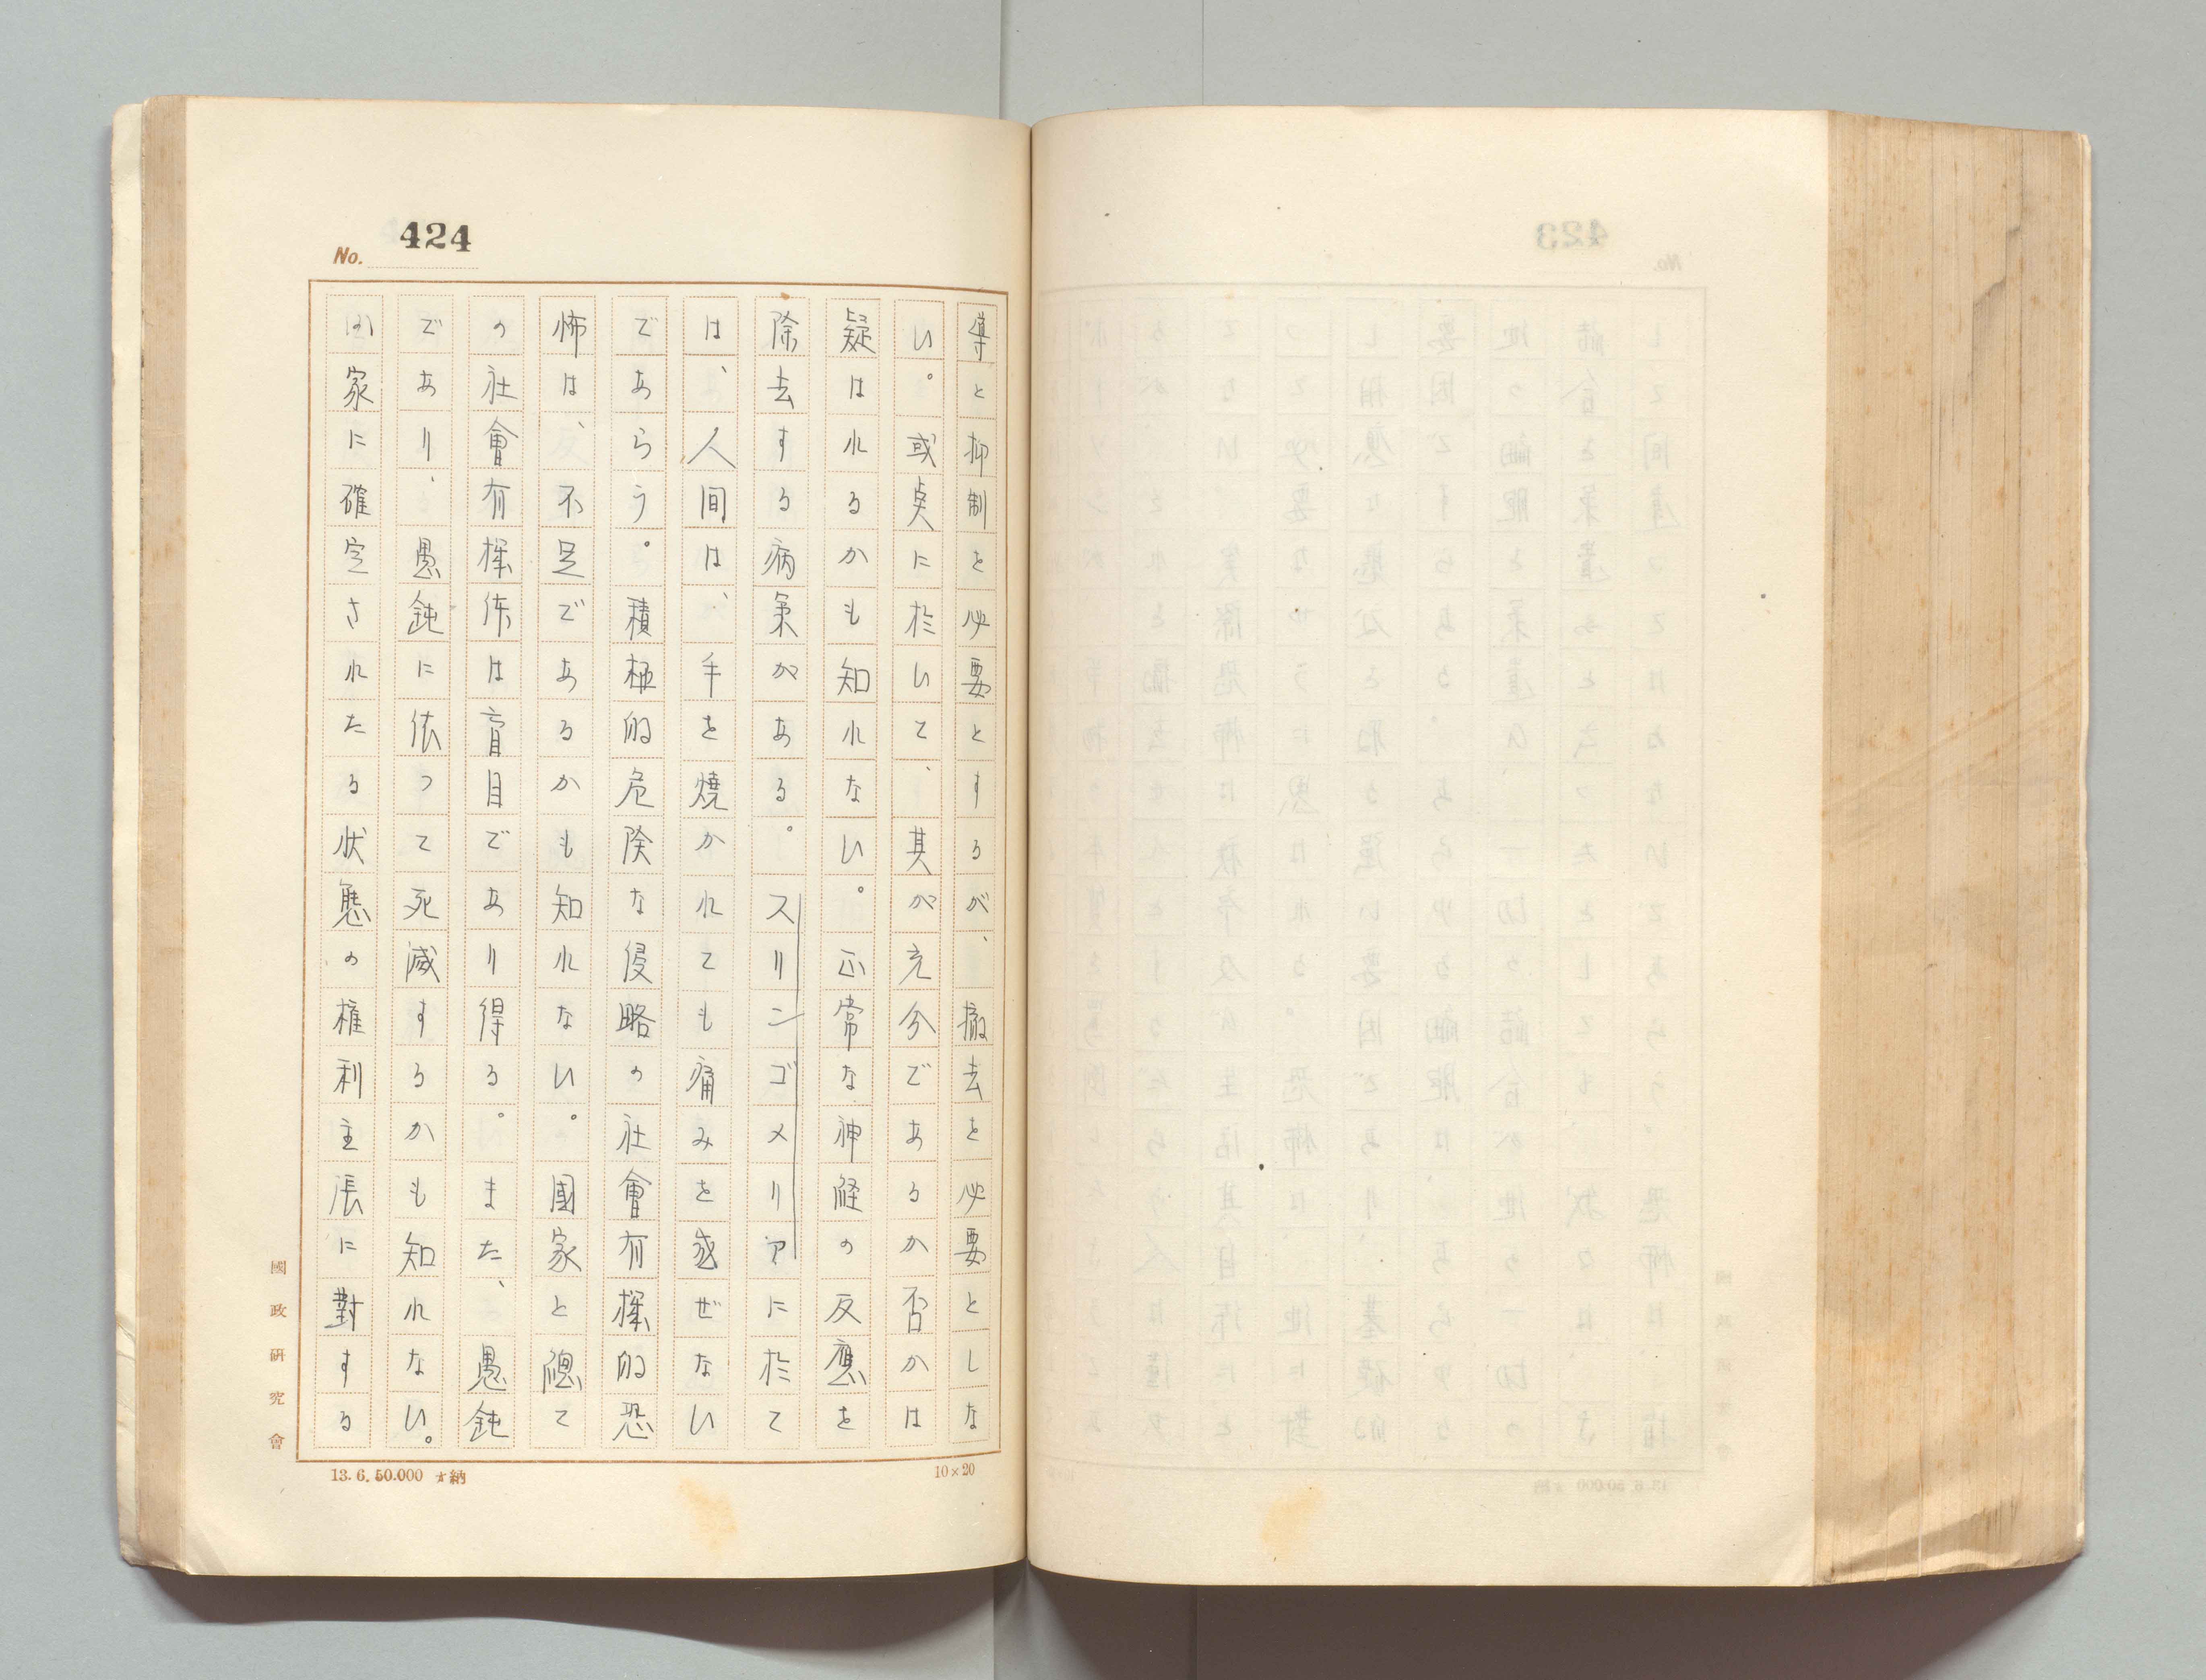 424
No.
導と抑制と必要とするが、撤去を必要としな
い。或点に於いて、其が充分であるか否かは
疑はれるかも知れない。正常な神経の反應を
除去する病氣がある。スリンゴメリアに於て
は、人間は、手を焼かれても痛みを感ぜない
であらう。積極的危険な侵略の社會有機的恐
怖は、不足であるかも知れない。國家と總て
の社會有機体は盲目であり得る。また、愚鈍
であり、愚鈍に依って死滅するかも知れない。
家に確定されたる状態の権利主張に對する
國政研究會
13.6.50.000 ★納
10×20